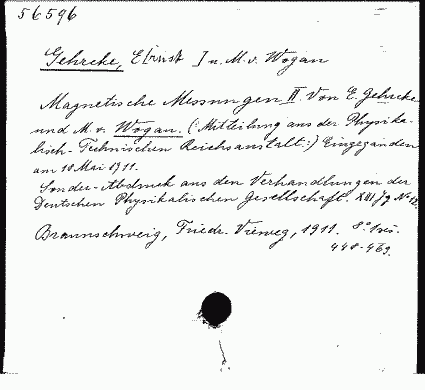 56596
Gehrcke, E[rnst] u. M. v. Wogan
Magnetische Messungen II. Von E. Gehrcke
und M. v. Wogan. (: Mitteilung aus der Physika-
lisch-Technischen Reichsanstalt:) Eingegangen
am 10 Mai 1911.
Sonder-Abdruck aus den Verhandlungen der
Deutschen Physikalischen Gesellschaft. XIII Jg No 12.
Braunschweig, Friedr. Vieweg, 1911. 8°
448-469.